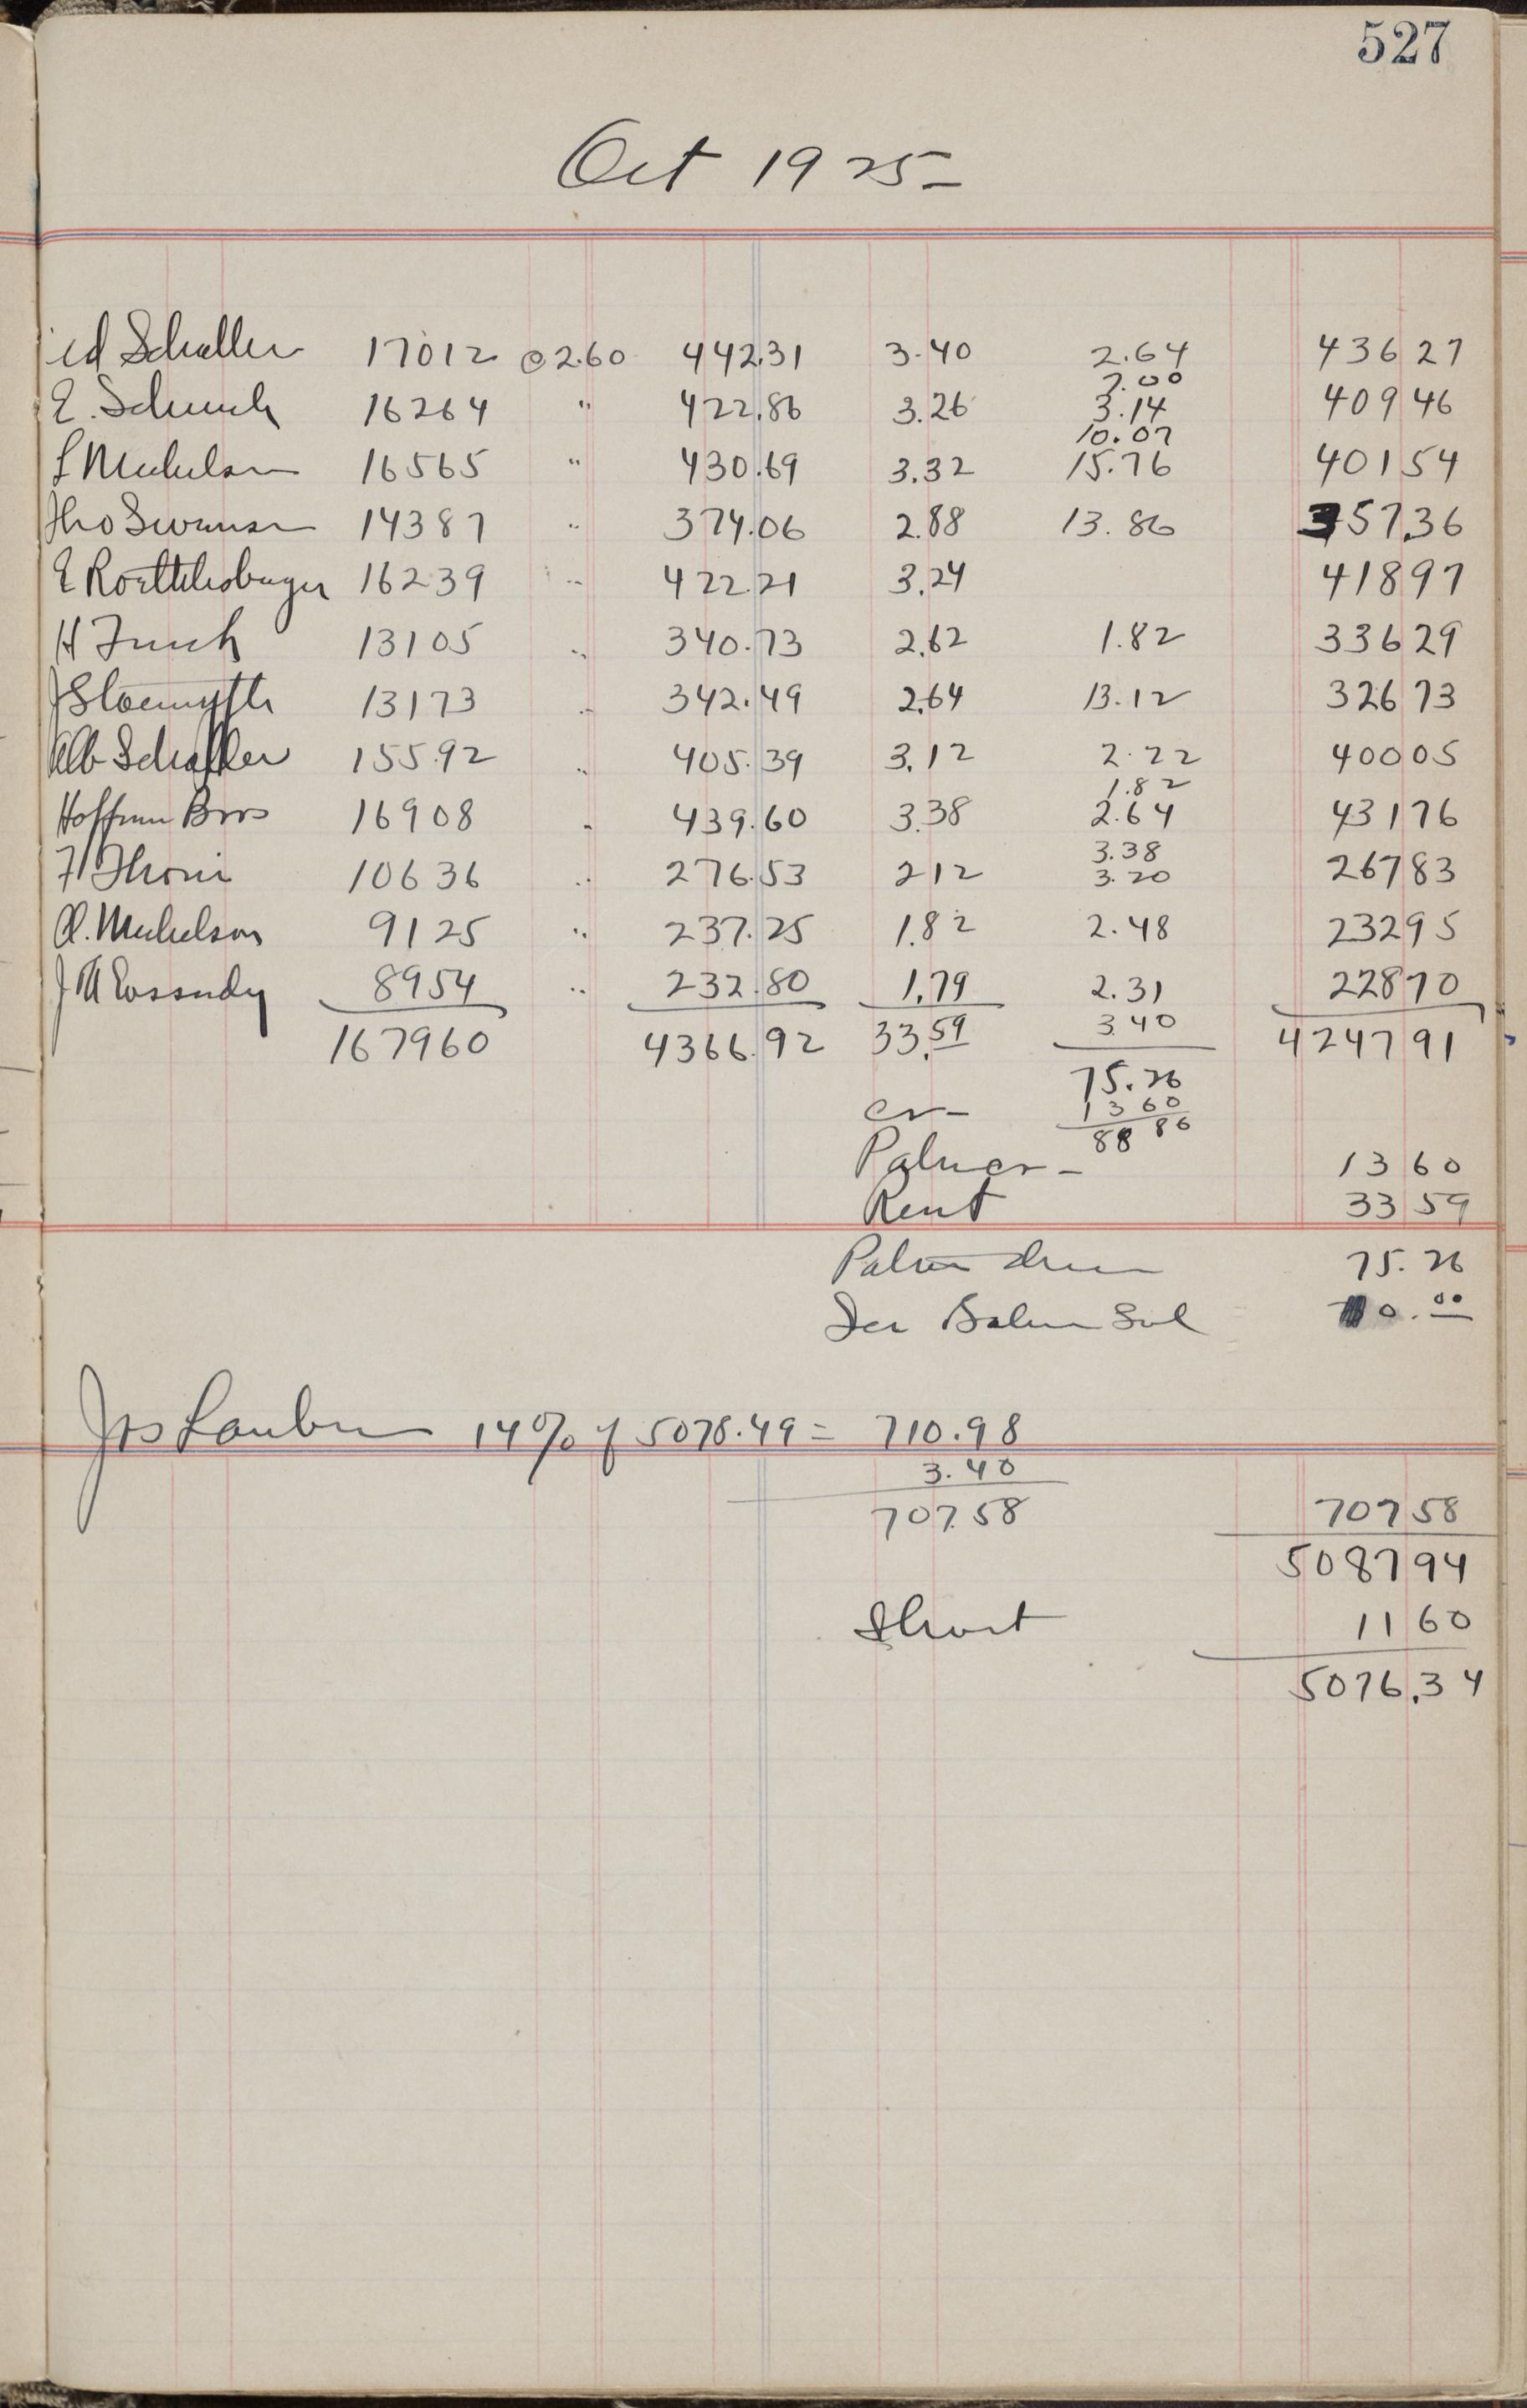 527
Oct 1925
Schaller 17012 @ 2.60 442.31 3.40 2.64 436 27
7.00
E. Schuuk 16264 " 422.86 3.26 3.14 409 46
10.07
L Muhelson 16565 " 430.69 3.32 15.76 401 54
Theo Swanson 14387 " 374.06 2.88 13.86 357.36
E Roethlisberger 16239 " 422.21 3.24 418 97
H Funk 13105 " 340.73 2.62 1.82 336 29
J 13173 " 342.49 2.64 13.12 326 73
Alb Schaller 15592 " 405.39 3.12 2.22 400 05
1.82
Hoffman Bros 16908 " 439.60 3.38 2.64 431 76
3.38
F Thoni 10636 " 276.53 2 12 3.20 267 83
A. Muhelson 9125 " 237.25 1.82 2.48 232 95
J M Cassady 8954 " 232.80 1.79 2.31 228 70
3.40
167960 4366.92 33.59 4247 91
75.26
cr - 13 60
88 86
Palmer - 13 60
Rent 33 59
Palmer 75.26
Sal 10.00
Jos Laubr 14% of 5078.49 = 710.98
3.40
707.58 707 58
5087 94
Short 11 60
5076.34